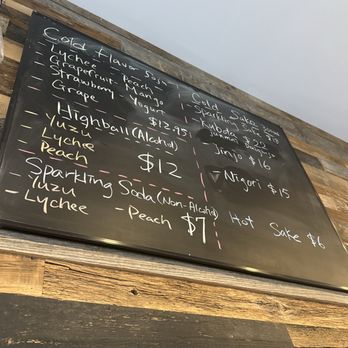 Cold Flavor Soju
- Lychee - Peach
- Grapefruit - Mango
- Strawberry - Yogurt
- Grape $12.95
Highball (Alcohol)
- Yuzu
- Lychee
- Peach $12
Sparkling Soda (Non-Alcohol)
- Yuzu
- Lychee - Peach $7
Cold Sake
- Sparkling Sake
$22
- Jinjo $16
- Nigori $15
Hot Sake $6